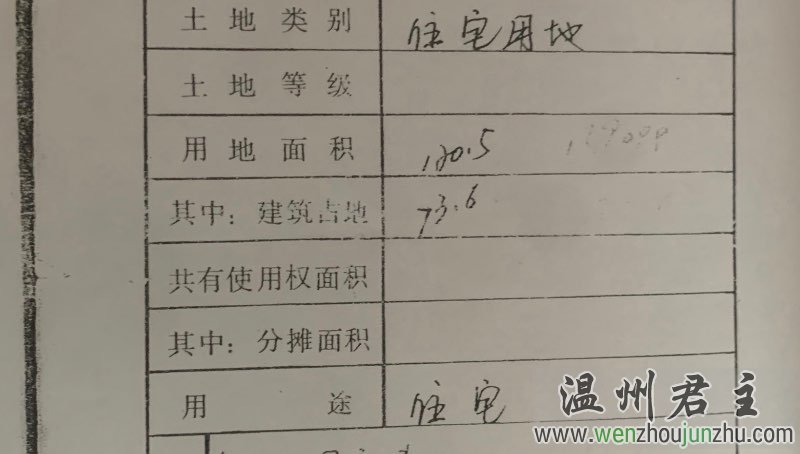 土地类别 住宅用地
土地等级
用地面积 120.5
其中：建筑占地 73.6
共有使用权面积
其中：分摊面积
用途 住宅
温州君主
www.wenzhoujunzhu.com